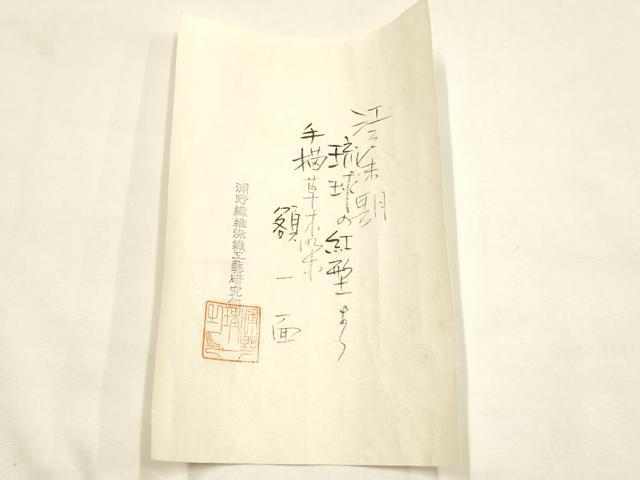 江戸末期
琉球の紅型より
手描草木染
額一面
浦野繊維染織工藝研究所
浦野理一之印